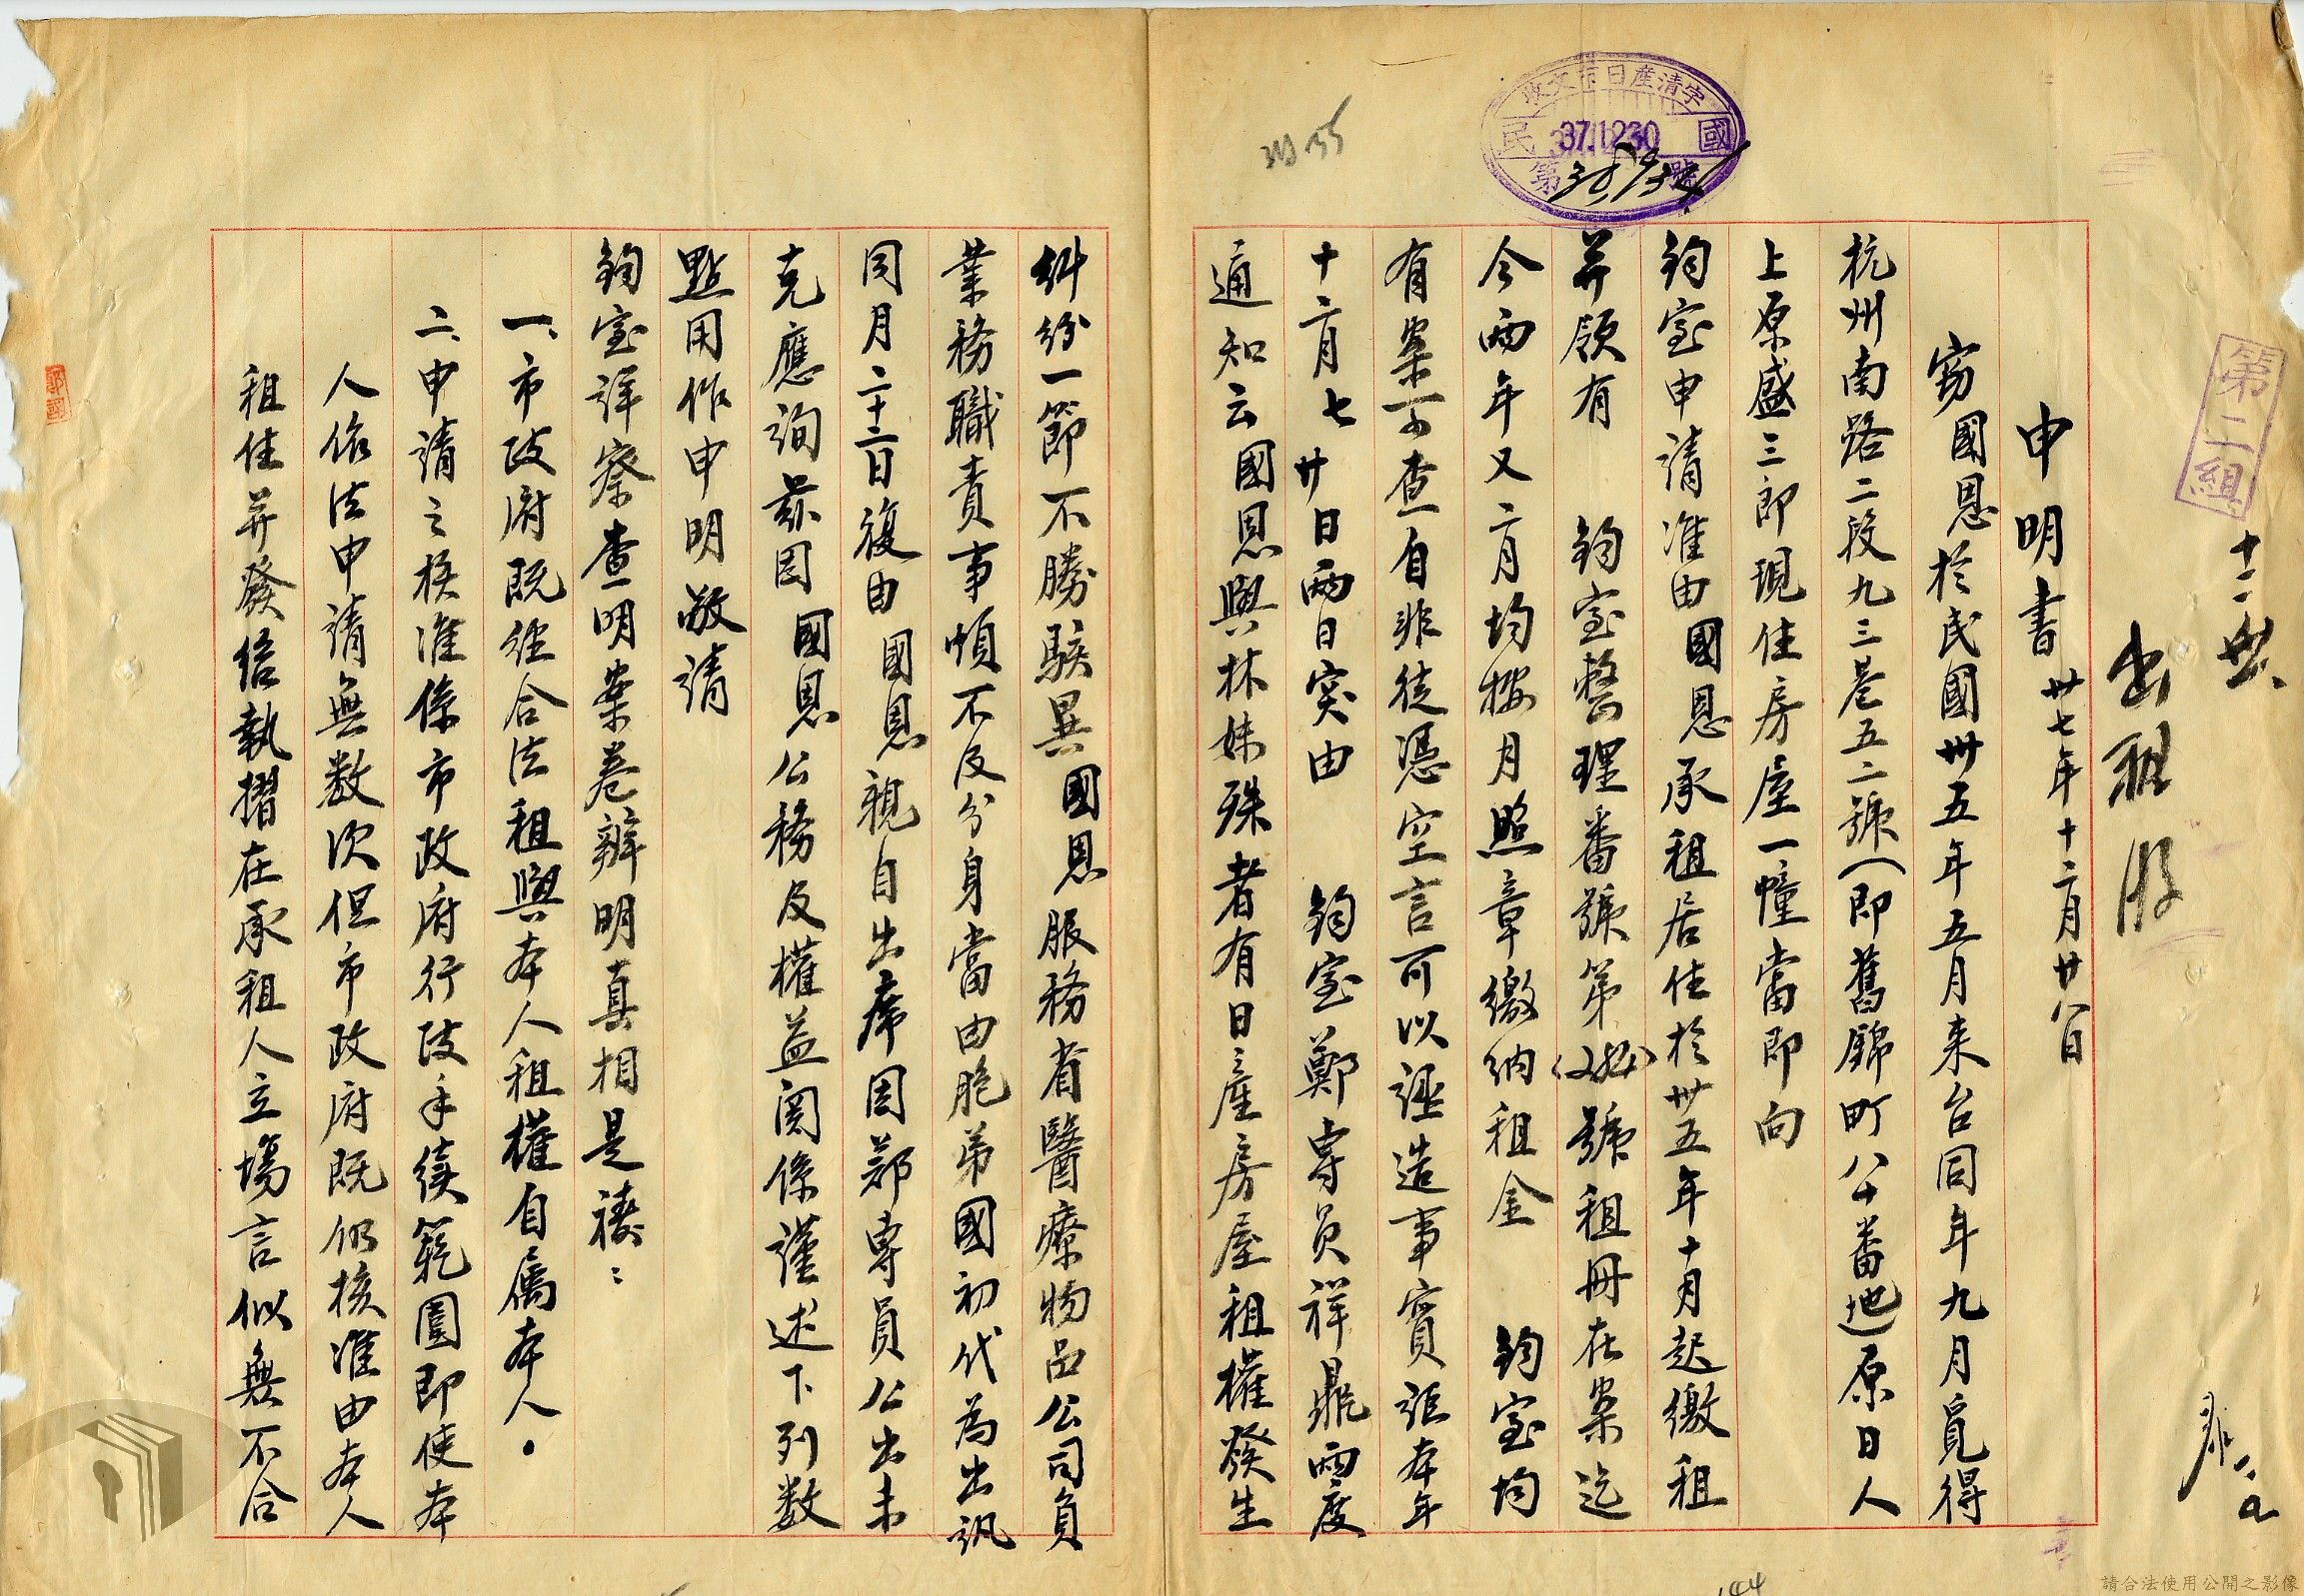 第二組
出租股
申明書 卅七年十二月廿八日
竊國恩於民國卅五年五月来台同年九月覓得
杭州南路二段九三巷五二號(即舊錦町八十番地)原日人
上原盛三郎現住房屋一幢當即向
鈞室申請准由國恩承租居住於卅五年十月起繳租
并領有 鈞室整理番號第 號租冊在案迄
今兩年又二月均按月照章繳納租金 鈞室均
有案可查自非徒憑空言可以誣造事實詎本年
十二月七廿日兩日突由 鈞室鄭專員祥鼎兩度
通知云國恩與林妹殊者有日產房屋租權發生
糾紛一節不勝駭異國恩服務者醫療物品公司負
業務職責事煩不及分身當由胞弟國初代為出訊
同月二十二日復由國恩親自出席因鄭專員公出未
克應詢茲因國恩公務及權益関係謹述下列数
點用作申明敬請
鈞室詳察查明案卷辨明真相是禱:
一、市政府既經合法租與本人租權自属本人.
二、申請之核准係市政府行政手續範圍即使本
人依法申請無数次但市政府既仍核准由本人
租住并發給執摺在承租人立塲言似無不合
收文市日産清字
民 37.12.30 國
第 號
請合法使用公開之影像